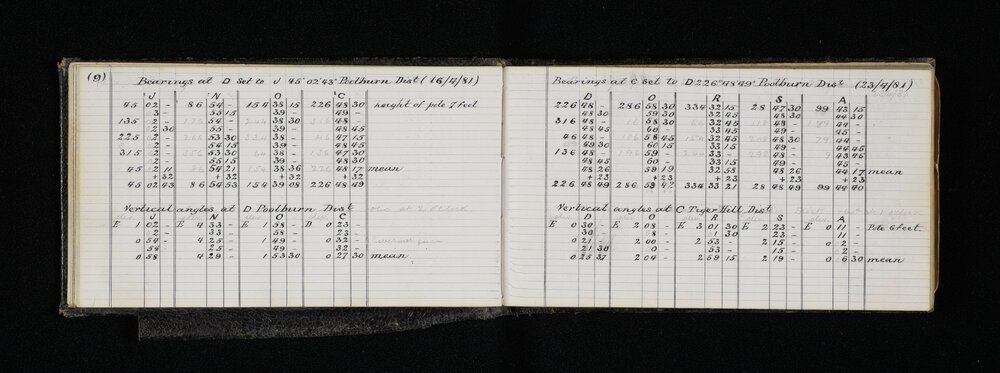 (9)
Bearings at D Set to J 45°02'43" Poolburn Dist (16/4/81)
J N O C
45 02 - 86 54 - 154 38 15 226 48 30 height of pole 7 feet
3 - 55 15 39 - 49 -
135 02 - 54 - 38 30 48 -
02 30 55 - 39 - 48 45
225 02 - 53 30 38 - 47 15
02 - 54 15 39 - 48 45
315 02 - 53 30 38 - 47 30
02 - 55 15 39 - 48 30
45 02 11 86 54 21 154 38 36 226 48 17 mean
+32 +32 +32 +32
45 02 43 86 54 53 154 39 08 226 48 49
Vertical angles at D Poolburn Dist
J N O C
E 1 02 - E 4 33 - E 1 58 - D 0 23 -
02 - 33 - 58 - 23 -
0 54 - 4 25 - 1 49 - 0 32 -
54 - 25 - 49 - 32 -
0 58 4 29 - 1 53 30 0 27 30 mean
Bearings at C Set to D 226°48'49" Poolburn Dist (23/4/81)
D O R S A
226 48 - 286 58 30 334 32 15 28 47 30 99 43 15
48 30 59 30 32 45 48 30 44 30
316 48 - 58 45 32 45 48 - 44 -
48 45 60 - 33 45 49 - 45 -
46 48 - 58 45 32 45 48 30 44 -
49 30 60 15 33 15 49 - 44 45
136 48 - 59 - 33 - 48 - 43 45
48 45 60 - 33 15 49 - 45 -
48 26 59 19 32 55 48 26 44 17 mean
+23 +23 +23 +23 +23
226 48 49 286 59 42 334 33 21 28 48 49 99 44 40
Vertical angles at C Tiger Hill Dist
D O R S A
E 0 30 - E 2 08 - E 3 01 30 E 2 23 - E 0 11 - Pole 6 feet
30 - 8 - 1 30 23 - 11 -
0 21 - 2 00 - 2 53 - 2 15 - 0 2 -
21 30 0 - 53 - 15 - 2 -
0 25 37 2 04 - 2 59 15 2 19 - 0 6 30 mean